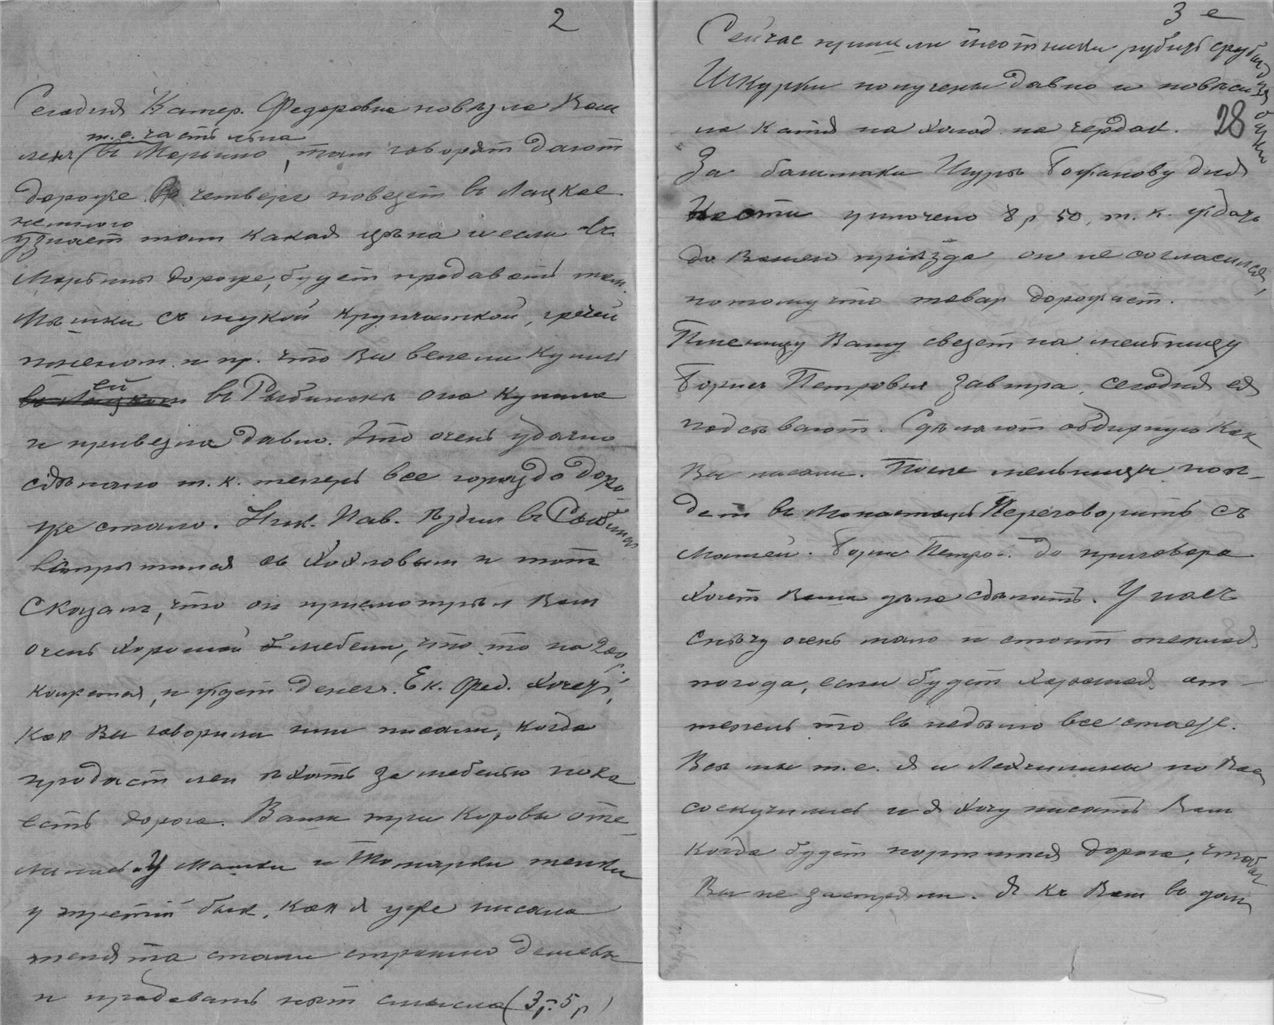 2
Сегодня Катер. Федоровна повезла Ваш
т.е. часть льна
лен (в Марьино, там говорят дают
дороже. В четверг повезет в Лацкое
немного
узнает там какая цѣна и если въ
Марьино дороже, будет продавать там.
Мѣшки съ мукой крупчаткой, гречей
пшеном и пр. что Вы велели купить
ей
въ Лацком въ Рыбинскѣ она купила
и привезла давно. Это очень удачно
сдѣлано т.к. теперь все гораздо доро-
же стало. Ник. Пав. ѣздил въ
съ Хохловым и тот
сказал, что он присмотрѣл Вам
очень хорошей мебели, что то на 200 р.
кажется, и ждет денег. Ек. Фед. хочет,
как Вы говорили или писали, когда
продаст лен ѣхать за мебелью пока
есть дорога. Ваши три коровы оте-
лились. У Машки и телки
у третьей бык, как я уже писала
телята стали страшно дешевы
и продавать нѣт смысла (3 р. 5 р)
3 е
Сейчас пришли плотники рубить сруб для бани
Шкурки получены давно и повѣси
ла Катя на холод на чердак.
28
За башмаки Шуры Гофанову для
Кости уплочено 8 р 50, т. к. ждать
до Вашего приѣзда он не согласился,
потому что товар дорожает.
Пшеницу Вашу свезет на мельницу
Борис Петрович завтра, сегодня ея
подсѣвают. Сдѣлают обдирную как
Вы писали. После мельницы поѣ-
дет въ Монастырь переговорить съ
Матей. Борис Петров. до приговора
хочет Ваши дѣла сдѣлать. У насъ
снѣгу очень мало и стоит теплая
погода, если будет хорошая от-
тепель то въ недѣлю все стает.
Всѣ мы т.е. я и по Вас
соскучились и я хочу писать Вам
когда будет портится дорога, чтобы
Вы не застряли. Я къ Вам въ дом